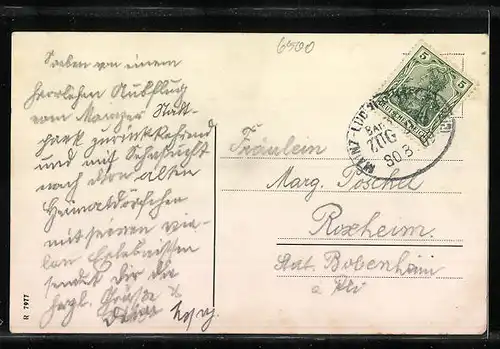 6500
Soeben von einem
herrlichen Ausflug
vom Mainzer Stadt-
park zurückkehrend
und mit Sehnsucht
nach dem alten
Heimatdörfchen
mit seinen vie-
len Erlebnissen
sendet Dir die
herzl. Grüße
Deine
5
5
MAINZ-LUD
BAH
ZUG
80 3
Fräulein
Marg. Pöschel
Roxheim
Stat. Bobenheim
a Rh
R 7977